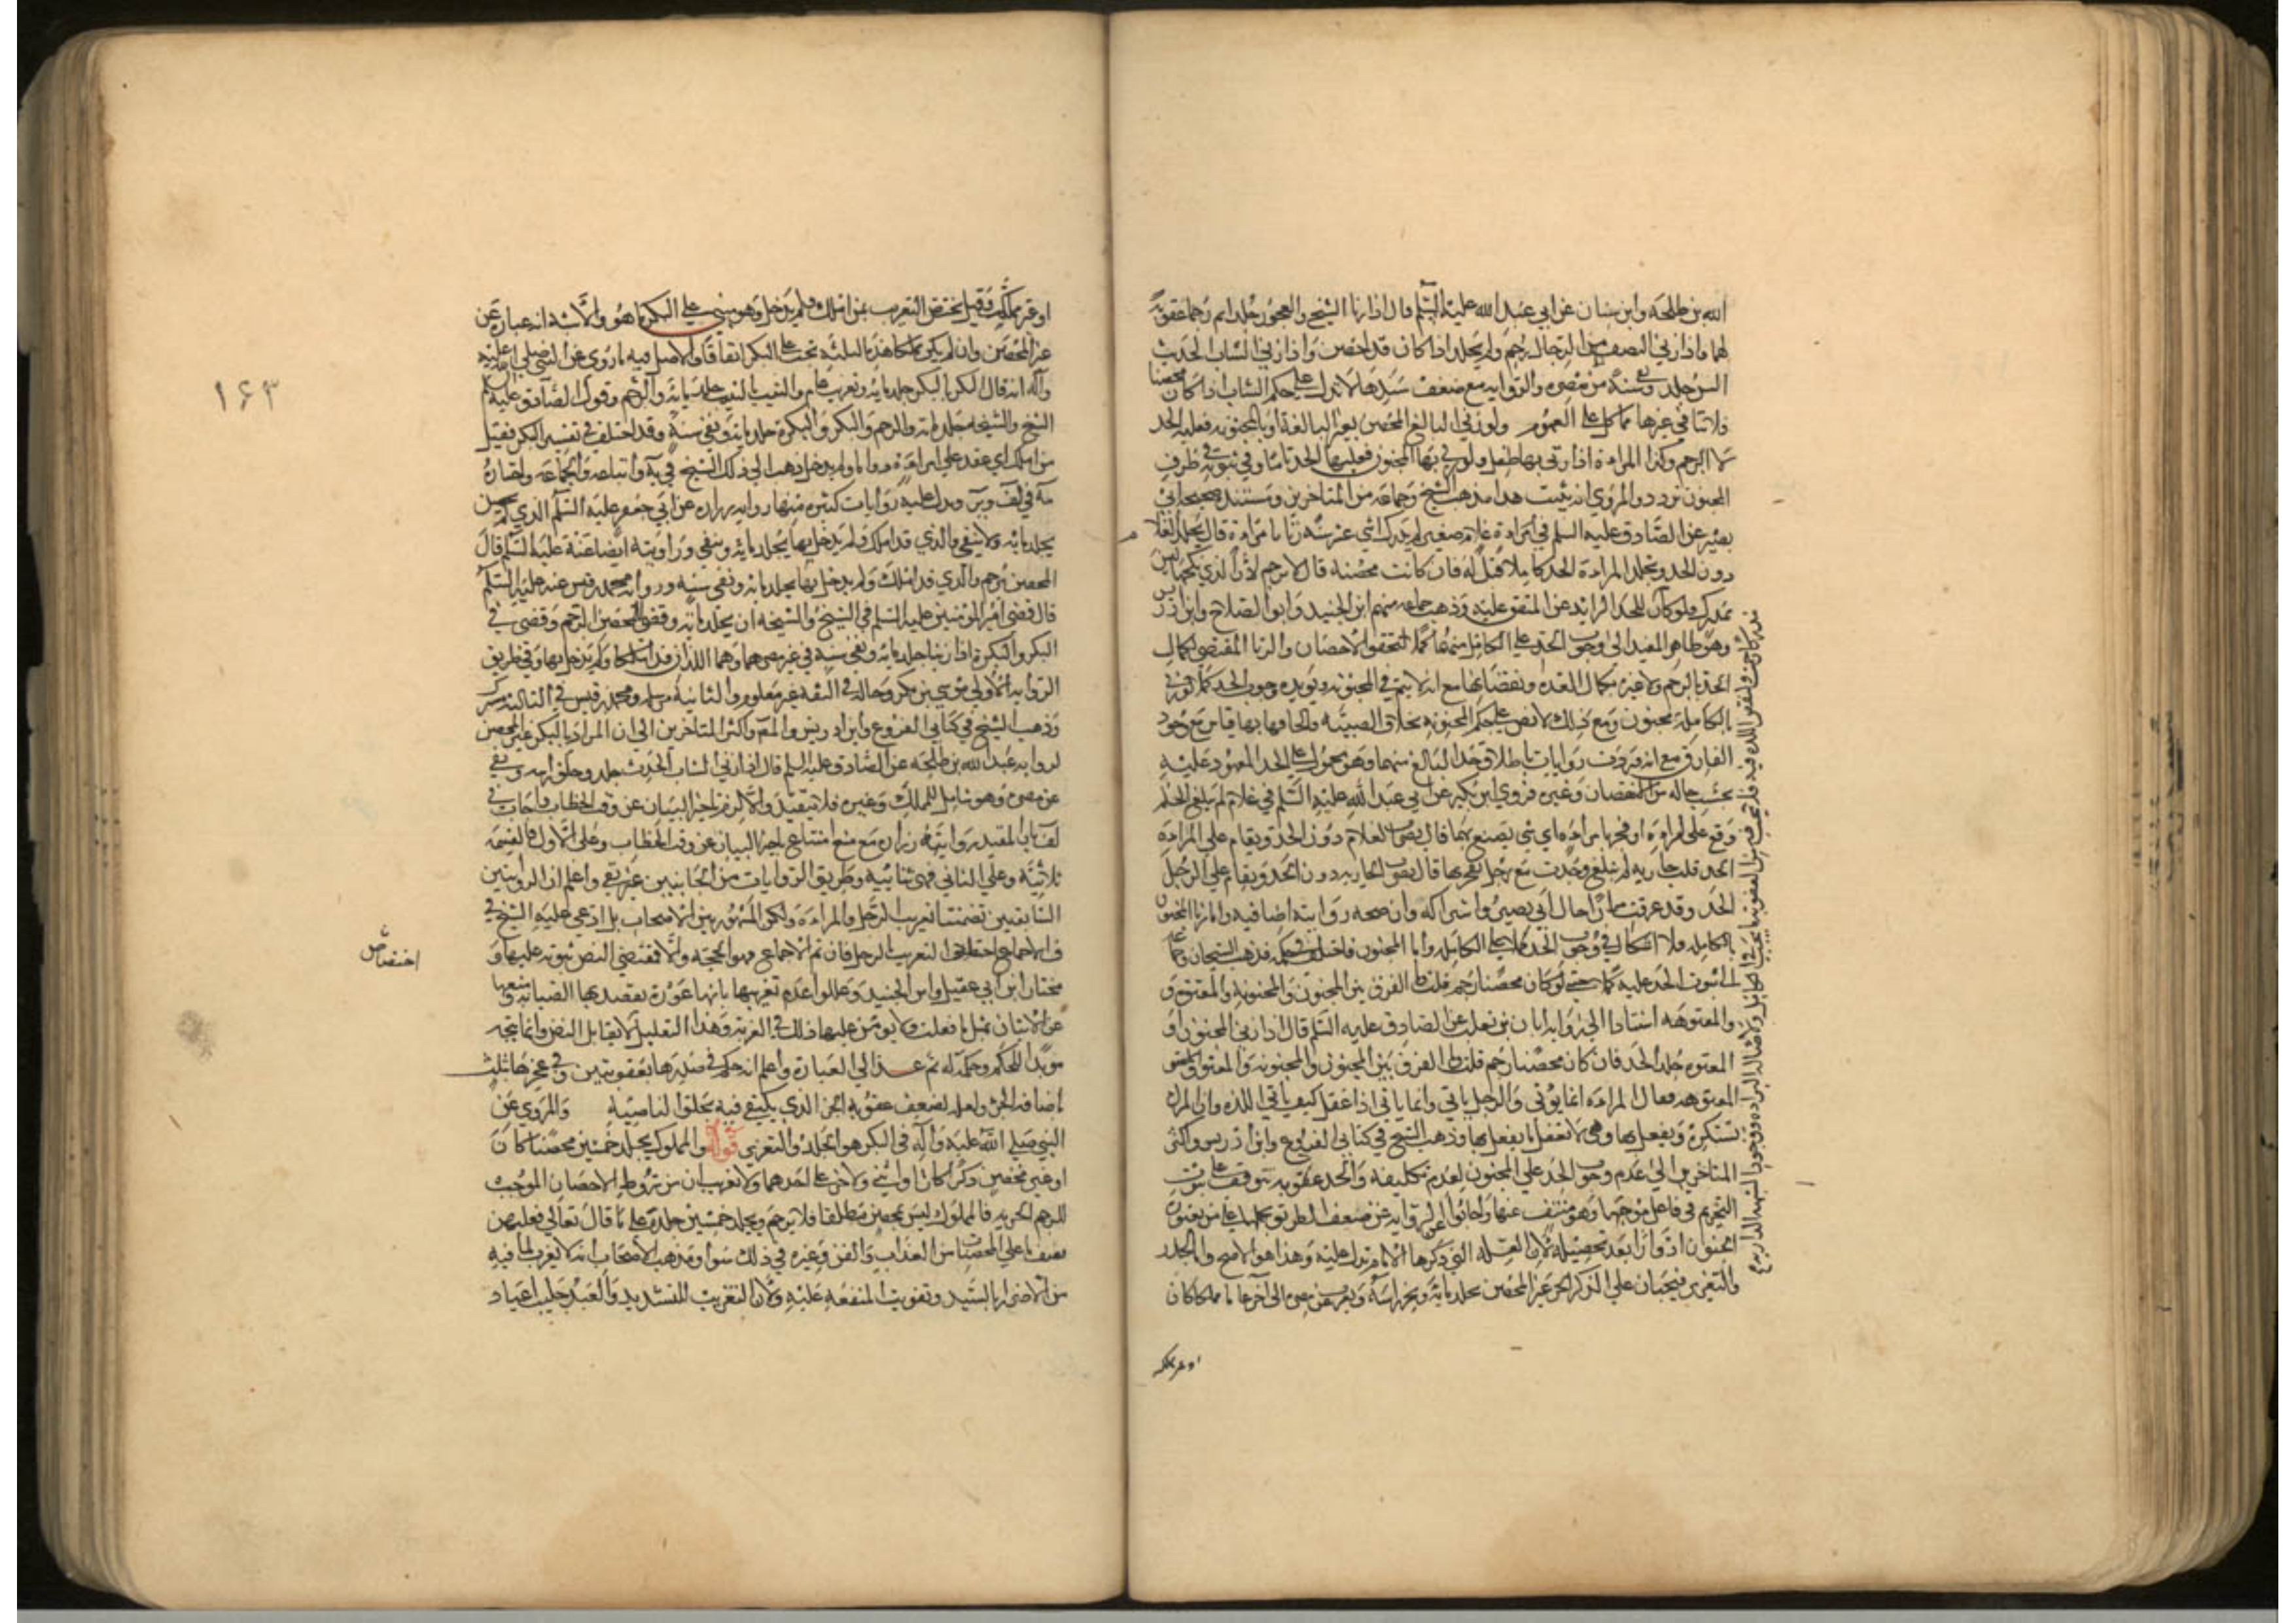 الله بن طلحة وابن سنان عن ابي عبد الله عليه السلم قال اذا زنا الشيخ والعجوز جلدا ثم رجما عقوبة
لهما واذا زني النصف من الرجال رجم ولم يجلد اذا كان قد احصن واذا زني الشاب الحدث
السن جلد ونفي سنة من مصره والرواية مع ضعف سندها لا تدل على حكم الشاب اذا كان محصنا
فلا تنافي غيرها مما دل على العموم ولو زني البالغ المحصن بغير البالغة او بالمجنونة فعليه الحد
لا الرجم وكذا المراءة اذا زني بها طفل ولو زني بها المجنون فعليها الحد تاما وفي ثبوته في طرف
المجنون تردد والمروي انه يثبت هذا مذهب الشيخ وجماعة من المتاخرين ومستنده صحيحة ابي
بصير عن الصادق عليه السلم في غلام صغير لم يدرك ابن عشر سنة زنا بامراءة قال يجلد الغلام
دون الحد وتجلد المراءة الحد كاملا قيل له فان كانت محصنة قال لا ترجم لان الذي نكحها ليس
بمدرك ولو كان للحد الزائد عن المتفق عليه وذهب جماعة منهم ابن الجنيد وابو الصلاح وابن ادريس
وهو ظاهر المفيد الى وجوب الحد على الكامل منهما كملا لتحقق الاحصان والزنا المقتضي لكمال
الحد بالرجم ولا عبرة بكمال اللذة ونقصانها مع انه لا يتم في المجنونة ويؤيده وجوب الحد كملا لو زني
بالكاملة مجنون ومع ذلك لا نص على حكم المجنونة بخلاف الصبية والحاقها بها قياس مع وجود
الفارق مع انه قد وردت روايات باطلاق حد البالغ منهما وهو محمول على الحد المعهود عليه
بحسب حاله من الاحصان وغيره فروي ابن بكير عن ابي عبد الله عليه السلم في غلام لم يبلغ الحلم
وقع على امراءة او فجر بامراءة اي شي يصنع بهما قال يضرب الغلام دون الحد ويقام على المراءة
الحد قلت جارية لم تبلغ وجدت مع رجل يفجر بها قال تضرب الجارية دون الحد ويقام على الرجل
الحد وقد عرفت مما مر حال ابي بصير واشتراكه وان صحة روايته اضافية واما زنا المجنون
بالكاملة فلا اشكال في وجوب الحد كملا على الكاملة واما المجنون فاختلف في حكمه فذهب الشيخان وجماعة
الى ثبوت الحد عليه كملا حتى لو كان محصنا رجم قلت ما الفرق بين المجنون والمجنونة والمعتوه
والمعتوهة استنادا الى رواية ابان بن تغلب عن الصادق عليه السلم قال اذا زني المجنون او
المعتوه جلد الحد فان كان محصنا رجم قلت ما الفرق بين المجنون والمجنونة والمعتوه والمعتوهة
المعتوهة فقال المراءة انما يؤتي والرجل ياتي وانما ياتي اذا عقل كيف ياتي اللذة وان المراءة
تستكره ويفعل بها وهي لا تعقل ما يفعل بها وذهب الشيخ في كتابي الفروع وابن ادريس واكثر
المتاخرين الى عدم وجوب الحد على المجنون لعدم تكليفه والحد عقوبة يتوقف على ثبوت
التحريم في فاعل موجبها وهو منتف عنها واجابوا عن الرواية عن ضعف الطريق بحملها على من يعتوره
الجنون ادوارا بعد تحصيله لان العلة التي ذكرها الامام تدل عليه وهذا هو الاصح واما الجلد
والتغريب فيجبان على الذكر الحر غير المحصن يجلد مائة ويجز راسه ويغرب عن مصره الى اخر عاما مملكا كان
او غير مملك
١٦٣
او غير مملك وقيل يختص التغريب بمن املك ولم يدخل وهو مبني على البكر ما هو والاشبه انه عبارة عن
غير المحصن وان لم يكن مملكا هذه الثلثة تجب على البكر اتفاقا والاصل فيه ما روي عن النبي صلى الله عليه
وآله انه قال البكر بالبكر جلد مائة وتغريب عام والثيب بالثيب جلد مائة والرجم وقول الصادق عليه السلم
الشيخ والشيخة جلد مائة والرجم والبكر والبكرة جلد مائة ونفي سنة وقد اختلف في تفسير البكر فقيل
من املك اي عقد على امراءة دواما ولم يدخل ذهب الى ذلك الشيخ في ية واتباعه وجماعة واختاره
مة في لف وير ويدل عليه روايات كثيرة منها رواية زرارة عن ابي جعفر عليه السلم الذي لم يحصن
يجلد مائة ولا ينفي والذي قد املك ولم يدخل بها يجلد مائة وينفي وروايته ايضا عنه عليه السلم قال
المحصن يرجم والذي قد املك ولم يدخل بها يجلد مائة ونفي سنة ورواية محمد بن قيس عنه عليه السلم
قال قضى امير المؤمنين عليه السلم في الشيخ والشيخة ان يجلدا مائة وقضى للمحصن الرجم وقضى في
البكر والبكرة اذا زنيا جلد مائة ونفي سنة في غير مصرهما وهما اللذان قد املكا ولم يدخل بها وفي طريق
الرواية الاولى موسى بن بكر وحاله في الثقة غير معلوم والثانية مرسلة ومحمد بن قيس في الثالثة مشترك
وذهب الشيخ في كتابي الفروع وابن ادريس والمص واكثر المتاخرين الى ان المراد بالبكر غير المحصن
لرواية عبد الله بن طلحة عن الصادق عليه السلم قال اذا زني الشاب الحدث جلد وحلق راسه ونفي
عن مصره وهو شامل للمملك وغيره فلا يتقيد والا لزم تاخير البيان عن وقت الخطاب واجاب في
لف بان المقيد رواية زرارة مع منع امتناع تاخير البيان عن وقت الخطاب وعلى الاول فالقسمة
ثلاثية وعلى الثاني فهي ثنائية وطريق الروايات من الجانبين غير نقي واعلم ان الروايتين
السابقتين تضمنتا تغريب الرجل والمراءة ولكن المشهور بين الاصحاب بل ادعى عليه الشيخ في
ف الاجماع اختصاص التغريب بالرجل فان تم الاجماع فهو الحجة والا فمقتضى النص ثبوته عليها وهو
اختصاص
مختار ابن ابي عقيل وابن الجنيد وعللوا عدم تغريبها بانها عورة يقصد بها الصيانة ومنعها
عن الاتيان بمثل ما فعلت ولا يؤمن عليها ذلك في الغربة وهذا التعليل لا يقابل النص وانما يتجه
مؤيدا للحكم وحكمة له ثم عد الى العبارة واعلم انه حكم في صدرها بعقوبتين وفي عجزها بثلث
باضافة الجز ولعله لضعف عقوبة الجز الذي يكتفي فيه بحلق الناصية والمروي عن
النبي صلى الله عليه وآله في البكر هو الجلد والتغريب قوله والمملوك يجلد خمسين محصنا كان
او غير محصن ذكرا كان او انثى ولا جز على احدهما ولا تغريب ان من شروط الاحصان الموجب
للرجم الحرية فالمملوك ليس بمحصن مطلقا فلا يرجم ويجلد خمسين جلدة على ما قال تعالى فعليهن
نصف ما على المحصنات من العذاب والقن وغيره في ذلك سوا ومذهب الاصحاب انه لا يغرب لما فيه
من الاضرار بالسيد وتفويت المنفعة عليه ولان التغريب للتشديد والعبد جليب اعتياد